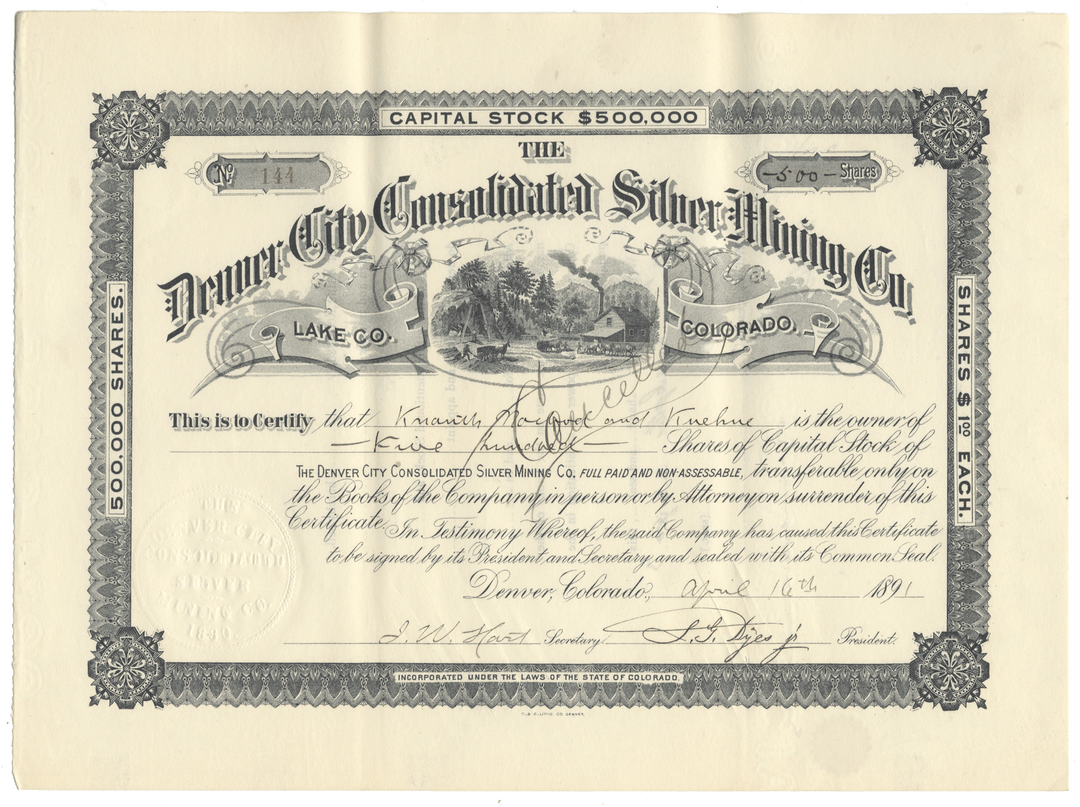 CAPITAL STOCK $500,000
THE
No 144
-500- Shares
Denver City Consolidated Silver Mining Co.
LAKE CO.
COLORADO.
500,000 SHARES.
SHARES $1.00 EACH.
Cancelled
This is to Certify that Knauth Nachod and Kuehne is the owner of
— Five hundred — Shares of Capital Stock of
THE DENVER CITY CONSOLIDATED SILVER MINING CO. FULL PAID AND NON-ASSESSABLE, transferable only on
the Books of the Company in person or by Attorney on surrender of this
Certificate. In Testimony Whereof, the said Company has caused this Certificate
to be signed by its President and Secretary and sealed with its Common Seal.
Denver, Colorado, April 16th 1891
THE
DENVER CITY
CONSOLIDATED
SILVER
MINING CO.
1890.
J. W. Hart Secretary
President.
INCORPORATED UNDER THE LAWS OF THE STATE OF COLORADO.